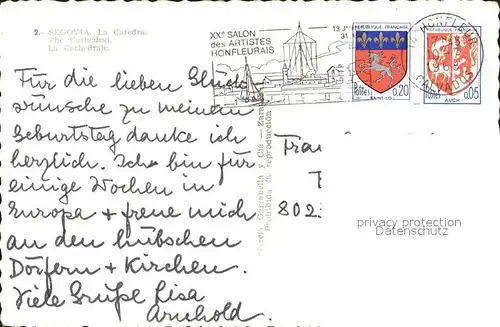 2.- SEGOVIA. La Catedra.
The Cathedral.
La Cathedrale.
XXᵉ SALON
des ARTISTES
HONFLEURAIS
13 J
31
REPUBLIQUE FRANÇAISE
POSTES
0,20
SAINT-LO
REPUBLIQUE FRANÇAISE
POSTES
0,05
AUCH
HONFLEUR
CALVADOS
Für die lieben Glück
wünsche zu meinem
Geburtstag danke ich
herzlich. Ich bin für
einige Wochen in
Europa + freue mich
an den hübschen
Dörfern + Kirchen.
Viele Grüße Lisa
Arnhold.
García Garrabella y Cía - Zara
Prohibida la reproducción
Frau
802
privacy protection
Datenschutz